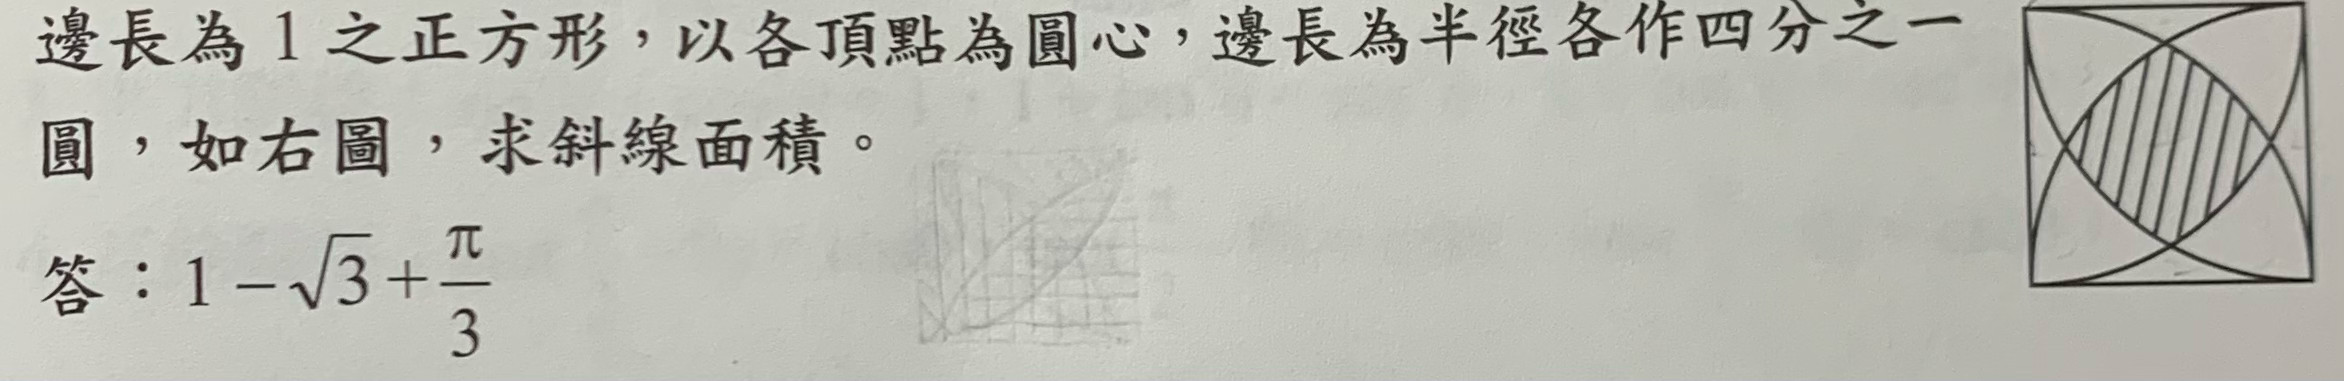 邊長為1之正方形，以各頂點為圓心，邊長為半徑各作四分之一
圓，如右圖，求斜線面積。
答：1-√3+π/3